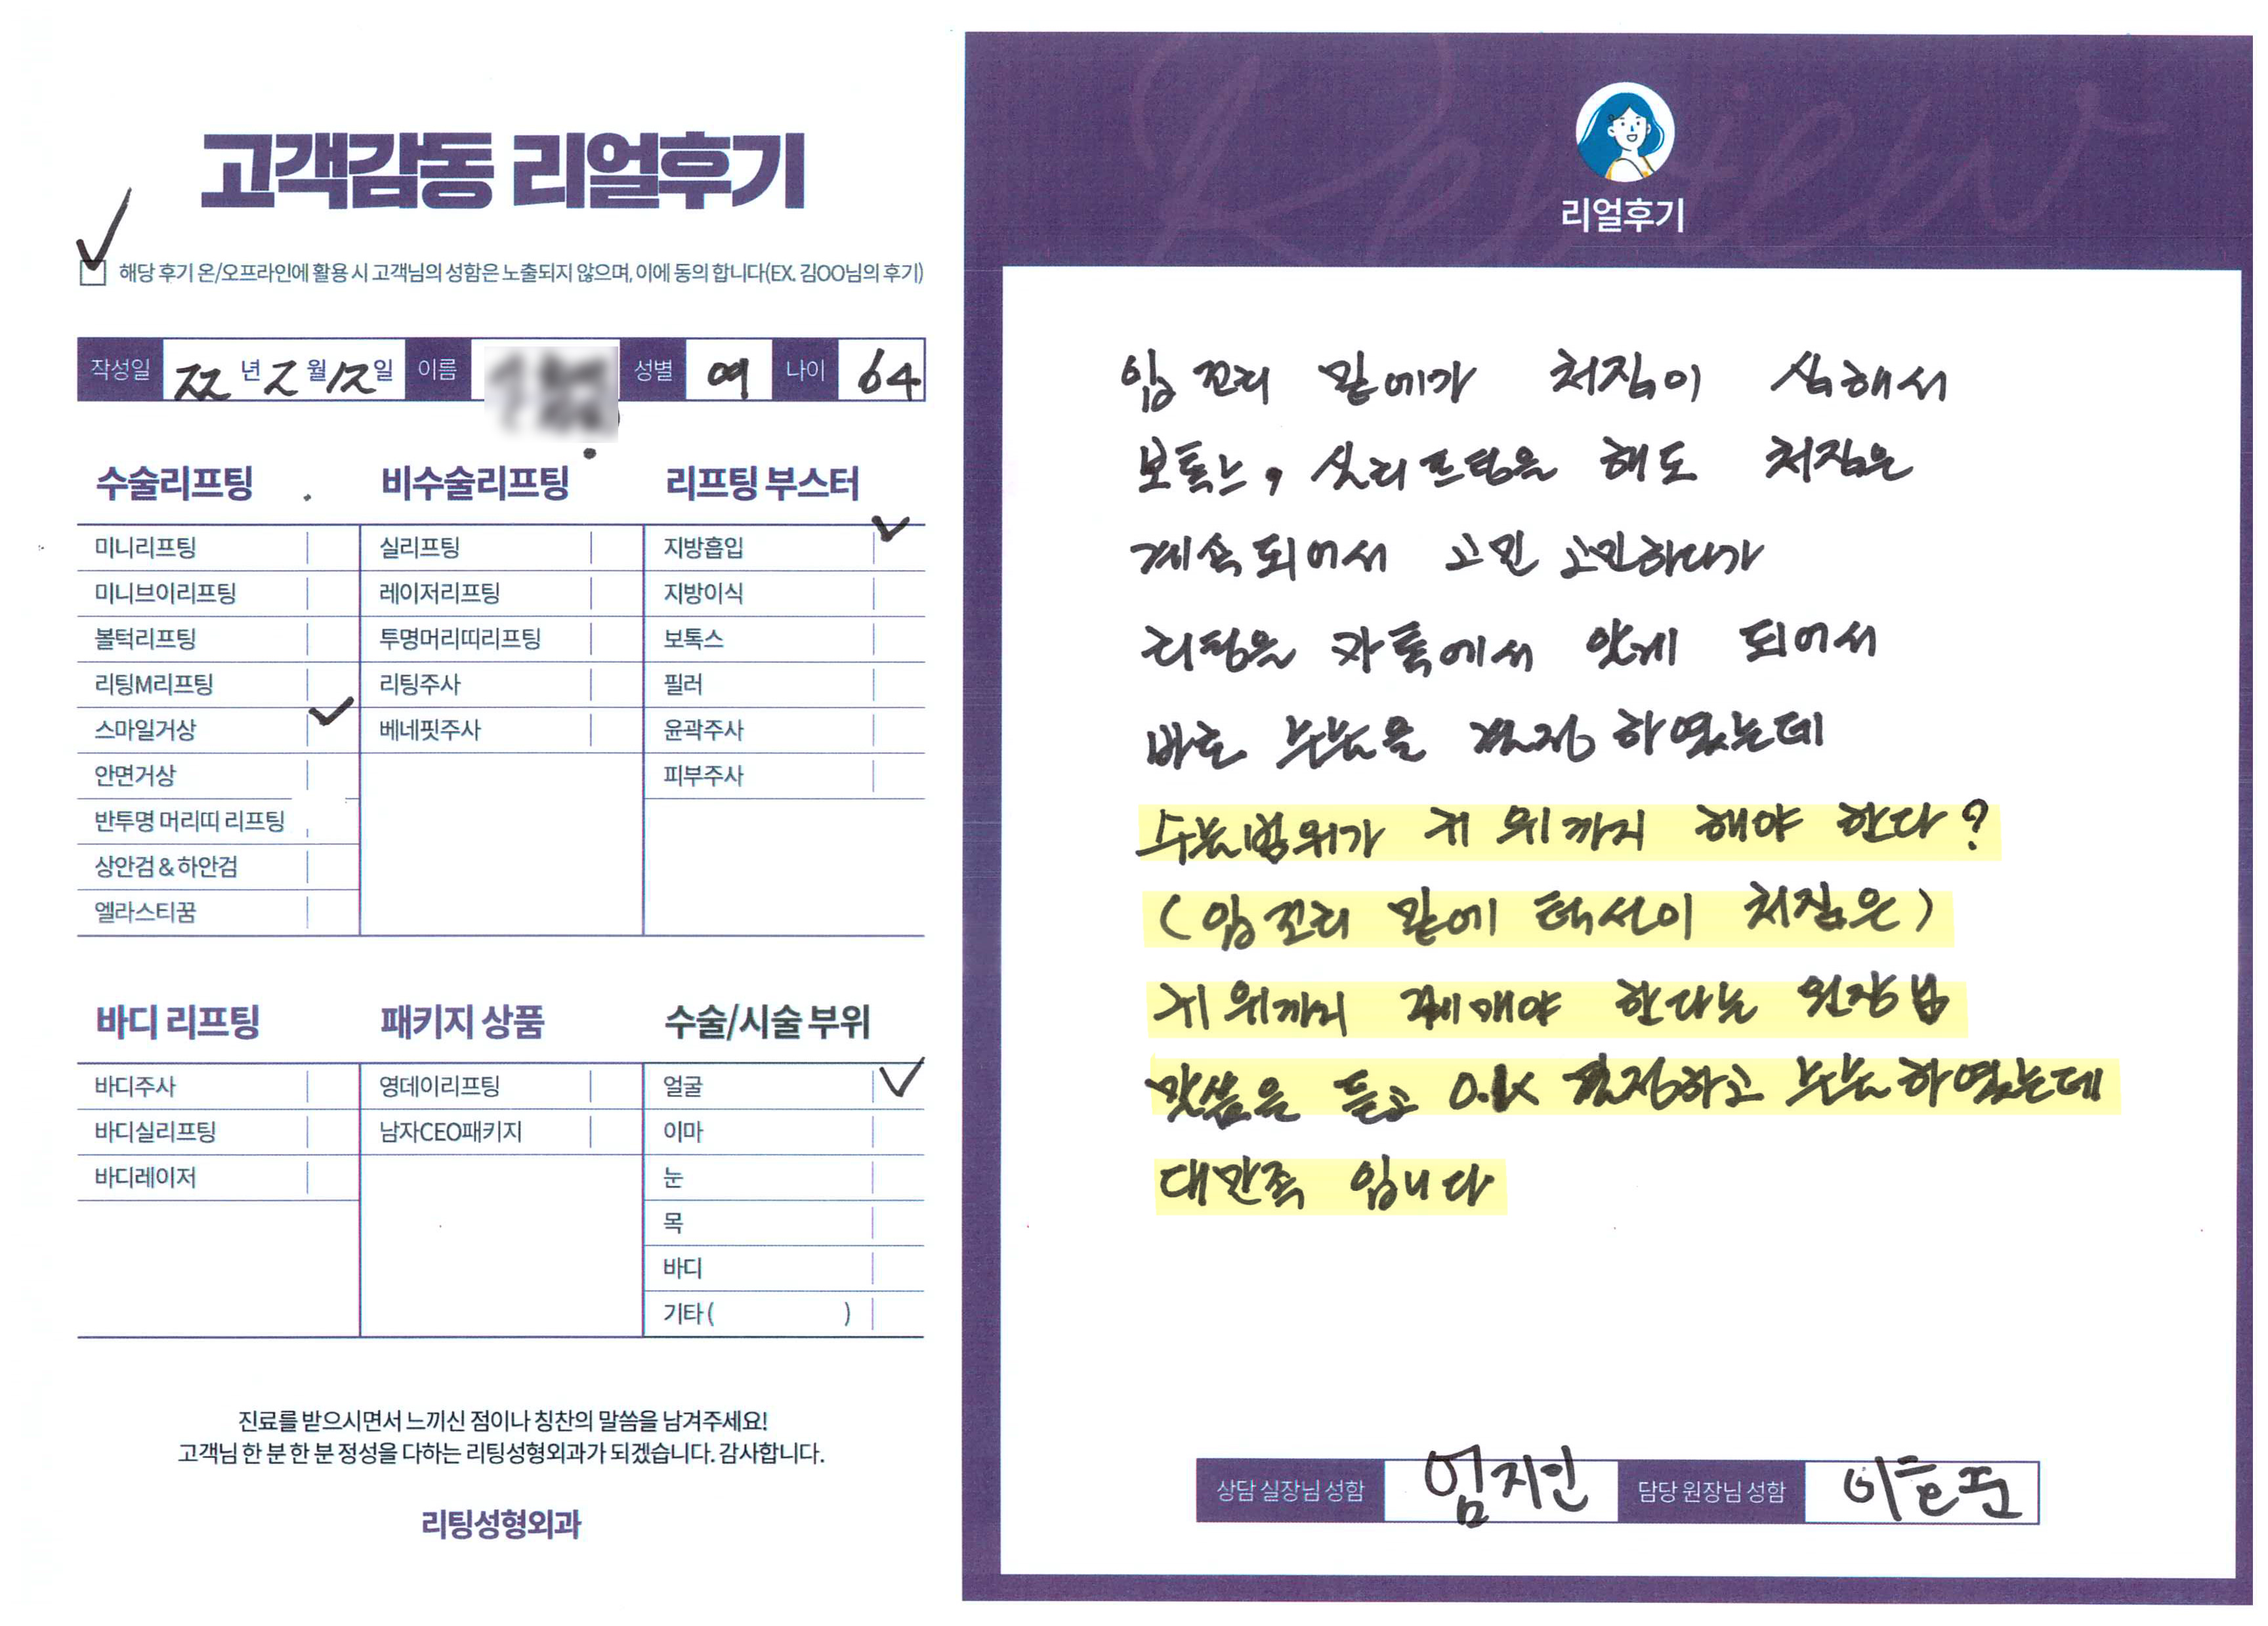 고객감동 리얼후기
해당 후기 온/오프라인에 활용 시 고객님의 성함은 노출되지 않으며, 이에 동의 합니다(EX. 김OO님의 후기)
작성일 22년 2월 12일 이름 성별 여 나이 64
수술리프팅
미니리프팅
미니브이리프팅
볼턱리프팅
리팅M리프팅
스마일거상
안면거상
반투명 머리띠 리프팅
상안검 & 하안검
엘라스티꿈
비수술리프팅
실리프팅
레이저리프팅
투명머리띠리프팅
리팅주사
베네핏주사
리프팅 부스터
지방흡입
지방이식
보톡스
필러
윤곽주사
피부주사
바디 리프팅
바디주사
바디실리프팅
바디레이저
패키지 상품
영데이리프팅
남자CEO패키지
수술/시술 부위
얼굴
이마
눈
목
바디
기타 ( )
진료를 받으시면서 느끼신 점이나 칭찬의 말씀을 남겨주세요!
고객님 한 분 한 분 정성을 다하는 리팅성형외과가 되겠습니다. 감사합니다.
리팅성형외과
Review
리얼후기
입꼬리 밑에가 처짐이 심해서
보톡스, 실리프팅을 해도 처짐은
계속 되어서 고민 고민하다가
리팅을 카톡에서 알게 되어서
바로 수술을 결정 하였는데
수술범위가 귀 위까지 해야 한다?
(입꼬리 밑에 턱선이 처짐은)
귀 위까지 째매야 한다는 원장님
말씀을 듣고 O.K 결정하고 수술 하였는데
대만족 입니다
상담 실장님 성함 엄지인 담당 원장님 성함